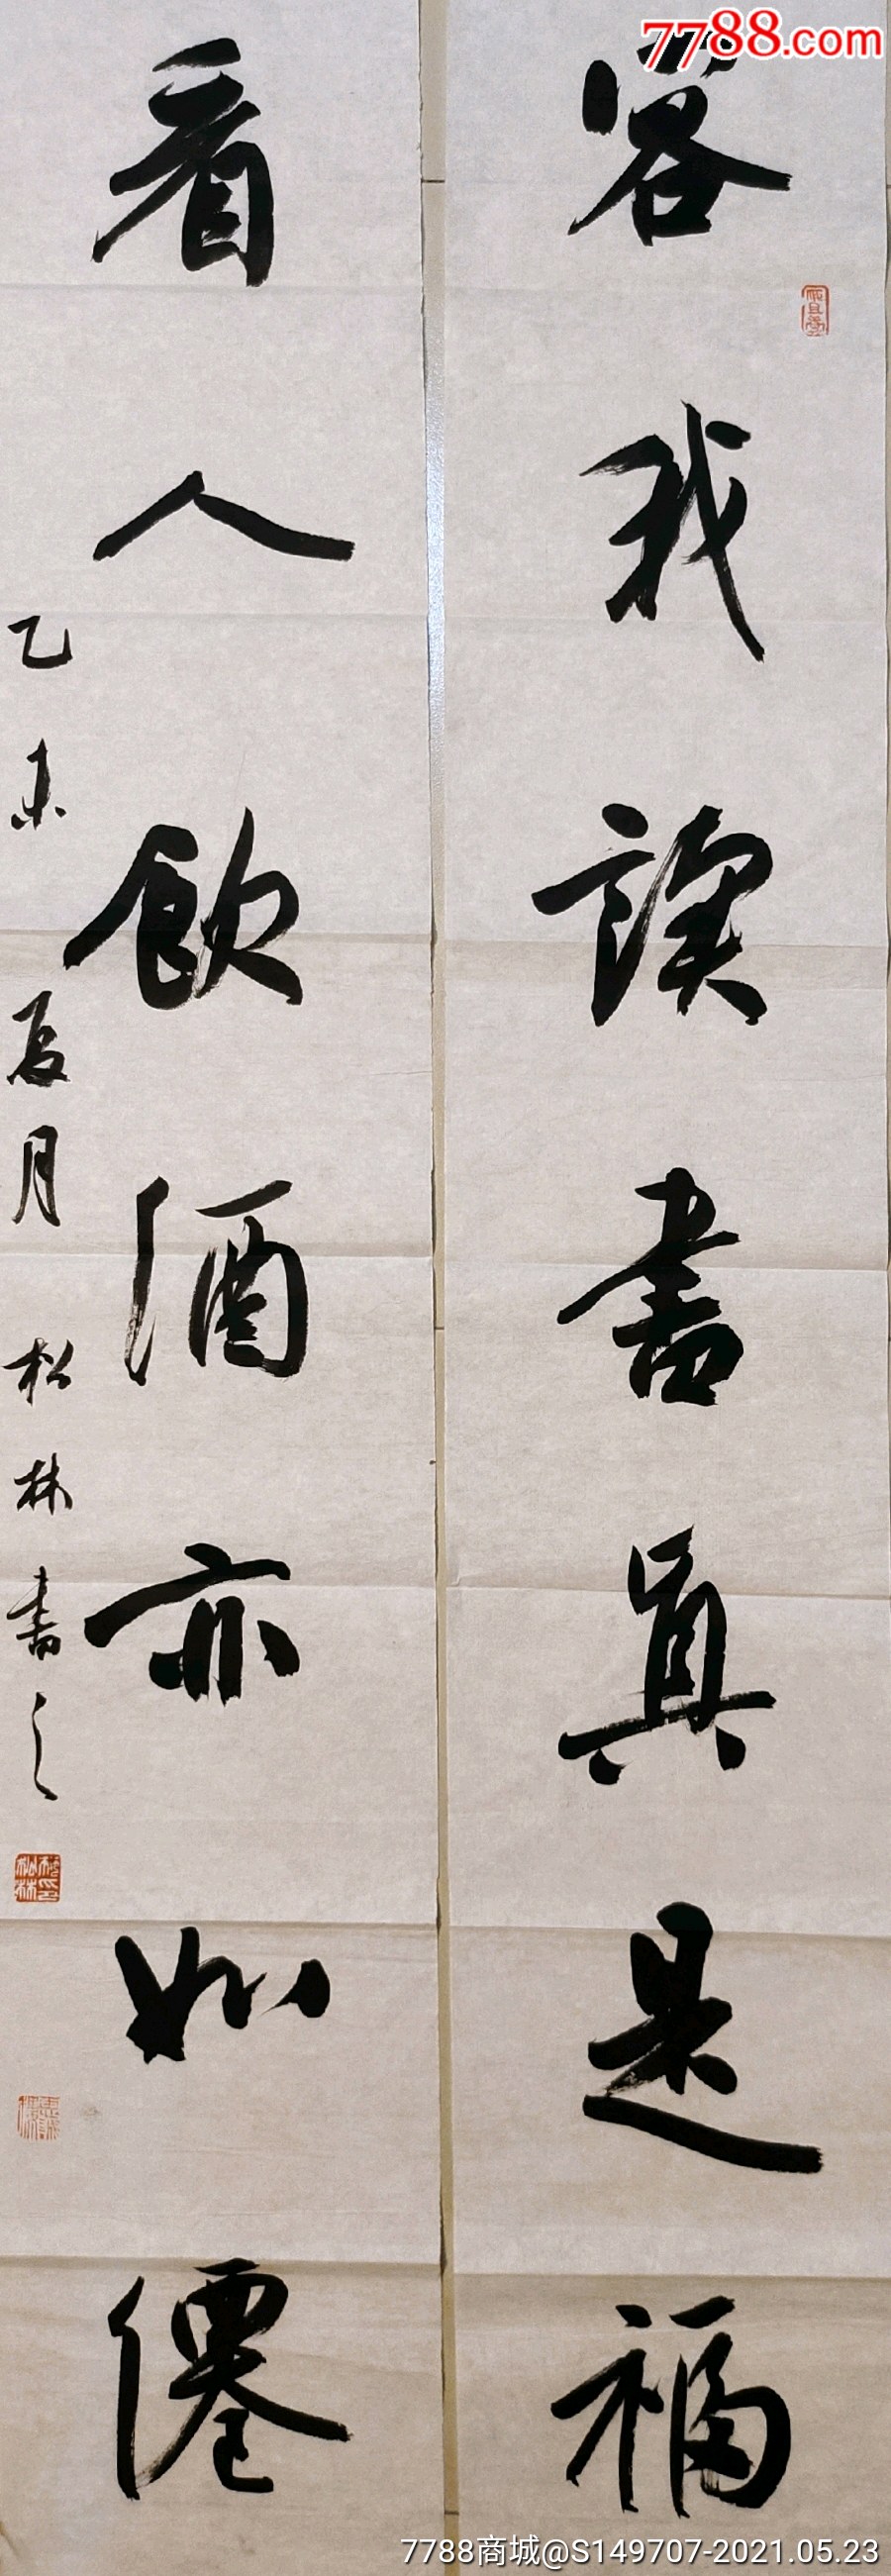 7788.com
容我讀書真是福
看人飲酒亦如僊
乙未夏月松林書之
7788商城@S149707-2021.05.23